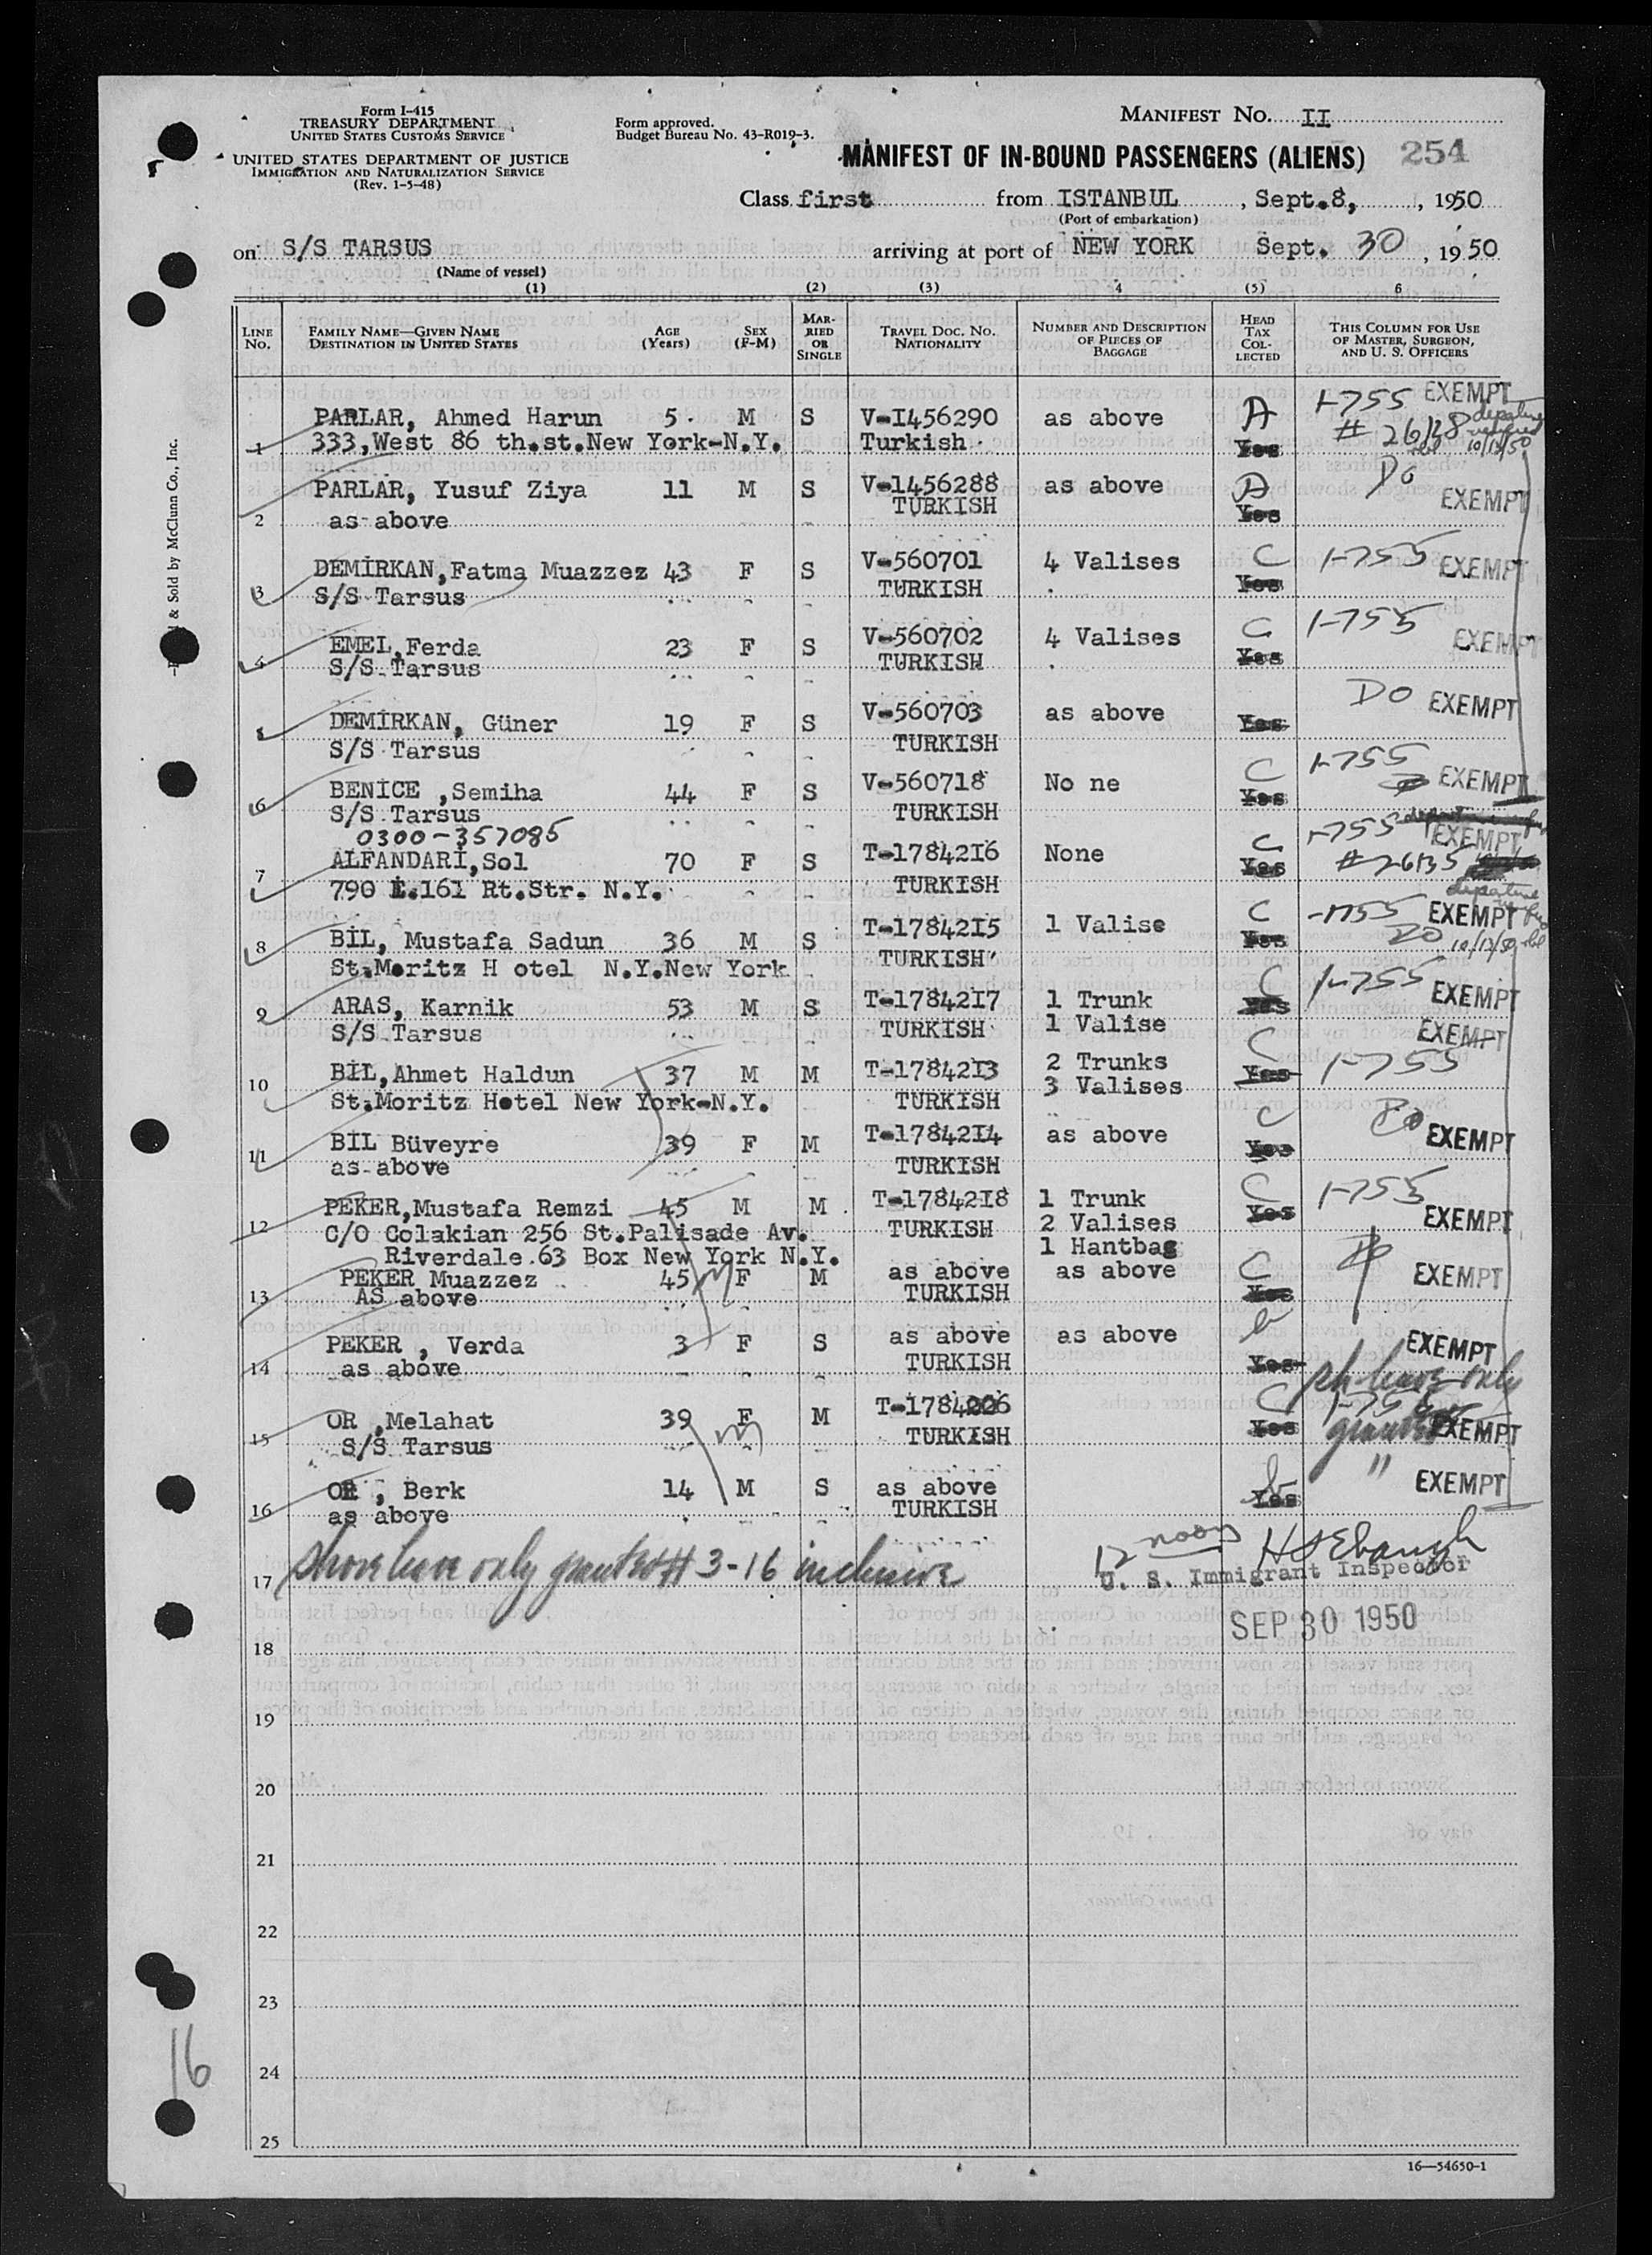 Form I-415
TREASURY DEPARTMENT
UNITED STATES CUSTOMS SERVICE
UNITED STATES DEPARTMENT OF JUSTICE
IMMIGRATION AND NATURALIZATION SERVICE
(Rev. 1-5-48)
Form approved.
Budget Bureau No. 43-R019-3.
MANIFEST No. II
MANIFEST OF IN-BOUND PASSENGERS (ALIENS) 254
Class first from ISTANBUL, Sept.8, 1950
(Port of embarkation)
on S/S TARSUS arriving at port of NEW YORK Sept. 30, 1950
(Name of vessel)
(1) (2) (3) 4 (5) 6
LINE No. FAMILY NAME—GIVEN NAME DESTINATION IN UNITED STATES AGE (Years) SEX (F-M) MARRIED OR SINGLE TRAVEL DOC. NO. NATIONALITY NUMBER AND DESCRIPTION OF PIECES OF BAGGAGE HEAD TAX COLLECTED THIS COLUMN FOR USE OF MASTER, SURGEON, AND U. S. OFFICERS
& Sold by McClunn Co., Inc.
PARLAR, Ahmed Harun 5 M S V-I456290 as above A 1-755 EXEMPT
1 333,West 86 th.st.New York-N.Y. Turkish Yes # 26138 departure verified 10/13/50
PARLAR, Yusuf Ziya 11 M S V-1456288 as above A Do EXEMPT
2 as above TURKISH Yes
DEMİRKAN,Fatma Muazzez 43 F S V-560701 4 Valises C 1-755 EXEMPT
3 S/S Tarsus TURKISH Yes
EMEL,Ferda 23 F S V-560702 4 Valises C 1-755 EXEMPT
4 S/S Tarsus TURKISH Yes
DEMİRKAN, Güner 19 F S V-560703 as above Yes DO EXEMPT
S/S Tarsus TURKISH
BENİCE ,Semiha 44 F S V-560718 No ne C 1-755 EXEMPT
6 S/S Tarsus TURKISH Yes
0300-357085
ALFANDARİ,Sol 70 F S T-1784216 None C 1-755 EXEMPT
7 790 E.161 Rt.Str. N.Y. TURKISH Yes # 26135
BİL, Mustafa Sadun 36 M S T-17842I5 1 Valise C 1-755 EXEMPT departure
8 St.Moritz H otel N.Y.New York TURKISH Yes DO 10/13/50
ARAS, Karnik 53 M S T-1784217 1 Trunk C 1-755 EXEMPT
9 S/S Tarsus TURKISH 1 Valise Yes EXEMPT
BİL,Ahmet Haldun 37 M M T-17842I3 2 Trunks C 1-755
10 St.Moritz Hotel New York-N.Y. TURKISH 3 Valises Yes
BİL Büveyre 39 F M T-17842I4 as above C Do EXEMPT
11 as above TURKISH Yes
PEKER,Mustafa Remzi 45 M M T-17842I8 1 Trunk C 1-755
12 C/O Colakian 256 St.Palisade Av. TURKISH 2 Valises Yes EXEMPT
Riverdale.63 Box New York N.Y. 1 Hantbag
PEKER Muazzez 45 F M as above as above C Do EXEMPT
13 AS above TURKISH Yes
PEKER , Verda 3 F S as above as above b EXEMPT
14 as above TURKISH Yes
sh leave only
OR ,Melahat 39 F M T-1784226 C 1-755
15 S/S Tarsus TURKISH Yes granted EXEMPT
OR , Berk 14 M S as above b " EXEMPT
16 as above TURKISH Yes
17 Shore leave only granted # 3-16 inclusive 12 noon H J Ebaugh
U. S. Immigrant Inspector
SEP 30 1950
18
19
20
21
22
23
24
25
16
16—54650-1